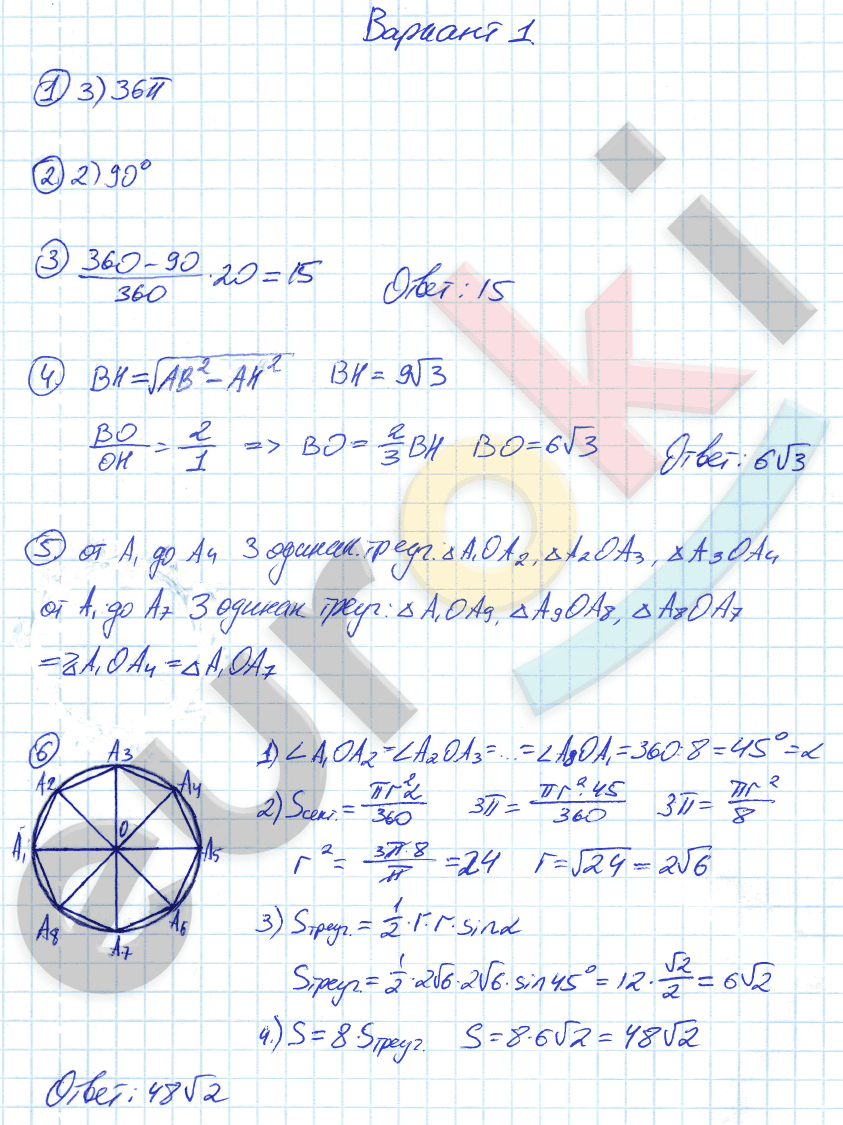 Вариант 1
① 3) 36π
② 2) 90°
③ (360 – 90)/360 · 20 = 15 Ответ: 15
④ BH = √(AB² – AH²) BH = 9√3
BO/OH = 2/1 => BO = 2/3 BH BO = 6√3 Ответ: 6√3
⑤ от A₁ до A₄ 3 одинак. треуг. △A₁OA₂, △A₂OA₃, △A₃OA₄
от A₁ до A₇ 3 одинак треуг: △A₁OA₉, △A₉OA₈, △A₈OA₇
=> △A₁OA₄ = △A₁OA₇
⑥
A₁ A₂ A₃ A₄ A₅ A₆ A₇ A₈ O
1) ∠A₁OA₂ = ∠A₂OA₃ = ... = ∠A₈OA₁ = 360 : 8 = 45° = α
2) Sсект. = πr²α/360 3π = πr² · 45/360 3π = πr²/8
r² = 3π · 8/π = 24 r = √24 = 2√6
3) Sтреуг. = 1/2 · r · r · sin α
Sтреуг. = 1/2 · 2√6 · 2√6 · sin 45° = 12 · √2/2 = 6√2
4.) S = 8 · Sтреуг. S = 8 · 6√2 = 48√2
Ответ: 48√2
euroki